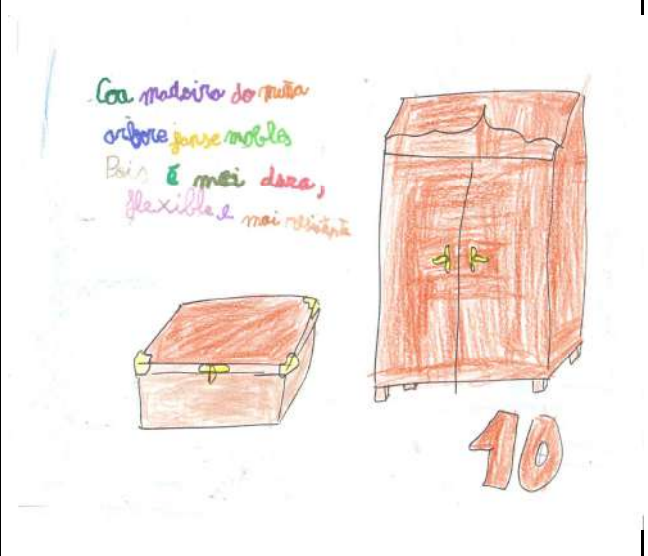 Coa madeira do miña
arbore fanse mobles
Pois é moi dura,
flexible e moi resistente
10